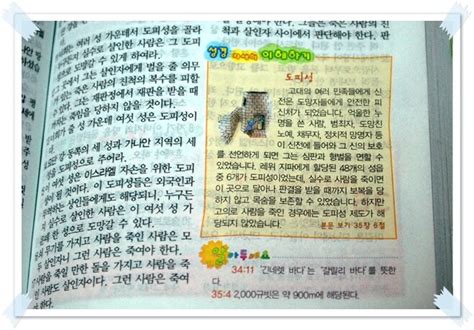 는 여러 성 가운데서 도피성을 골라
실수로 살인한 사람은 그 도
있게 하여라.
그는 살인자에게 벌을 줄 의무
죽은 사람의 친척의 복수를 피할
그는 재판정에서 재판을 받을 때
죽임을 당하지 않을 것이다.
성 가운데 여섯 성은 도피성이
강 동쪽의 세 성과 가나안 지역의 세
도피성으로 주어라.
여섯 성은 이스라엘 자손을 위한 도피
이 도피성들은 외국인과
해당되니, 누구든
사람은 이 여섯 성 가
한 성으로 도망갈 수 있다.
무기를 가지고 사람을 죽인 사람은
그런 사람은 죽여야 한다.
사람을 죽일 만한 돌을 가지고 사람을
살인자이다. 그런 사람은 죽여
그들은 죽은 사람의 친
척과 살인자 사이에서 판단해야 한다.
성경 이해하기
도피성
고대의 여러 민족들에게 신
전은 도망자들에게 안전한 피
신처가 되었습니다. 억울한 누
명을 쓴 사람, 범죄자, 도망친
노예, 채무자, 정치적 망명자 등
이 신전에 들어와 그 신의 보호
를 선언하게 되면 그는 심판과 형벌을 면할 수
있었습니다.
레위 지파에게 할당된 48개의 성읍
중 6개가 도피성이었는데, 실수로 사람을 죽이면
이 곳으로 달아나 판결을 받을 때까지 보복을 당
하지 않도록 보호을 수 있었습니다. 하지만
고의로 사람을 죽인 경우에는 도피성 제도가 해
당되지 않았습니다.
본문 보기 35장 6절
알아두세요
34:11 '긴네렛 바다'는 '갈릴리 바다'를 뜻한
다.
35:4 2,000규빗은 약 900m에 해당된다.